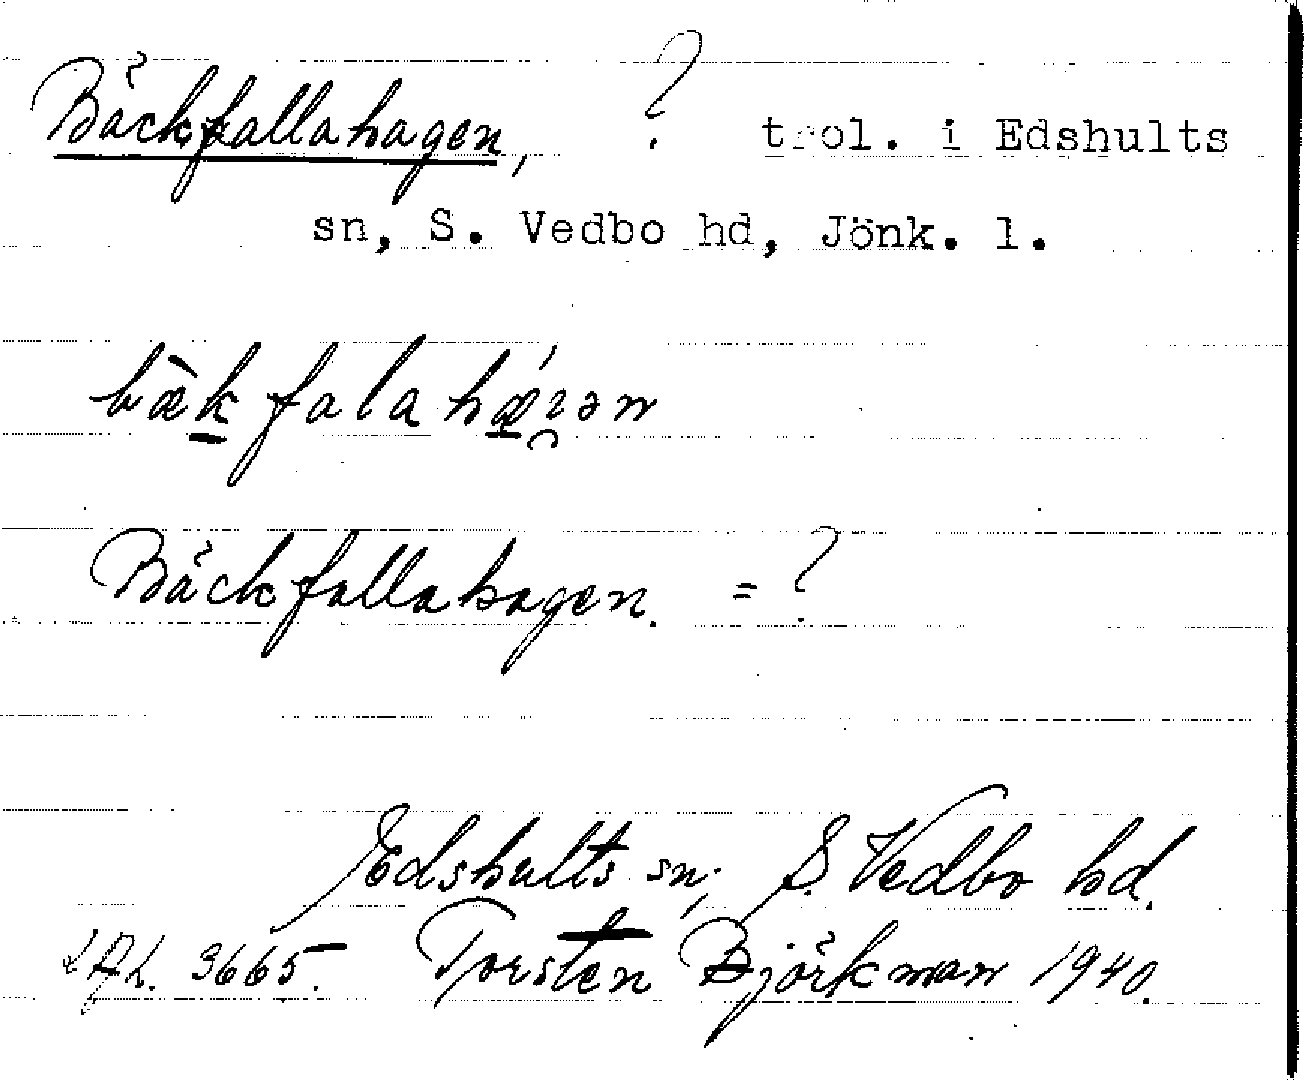 Bäckfallahagen, ? trol. i Edshults
sn, S. Vedbo hd, Jönk. l.
bæ̀k falahǽgən
Bäckfallahagen. = ?
Edshults sn, S. Vedbo hd.
3665. Torsten Björkman 1940.